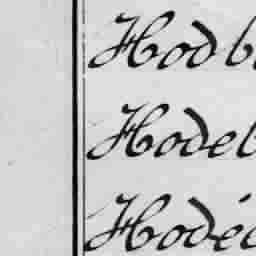 Hodb
Hodel
Hodéc